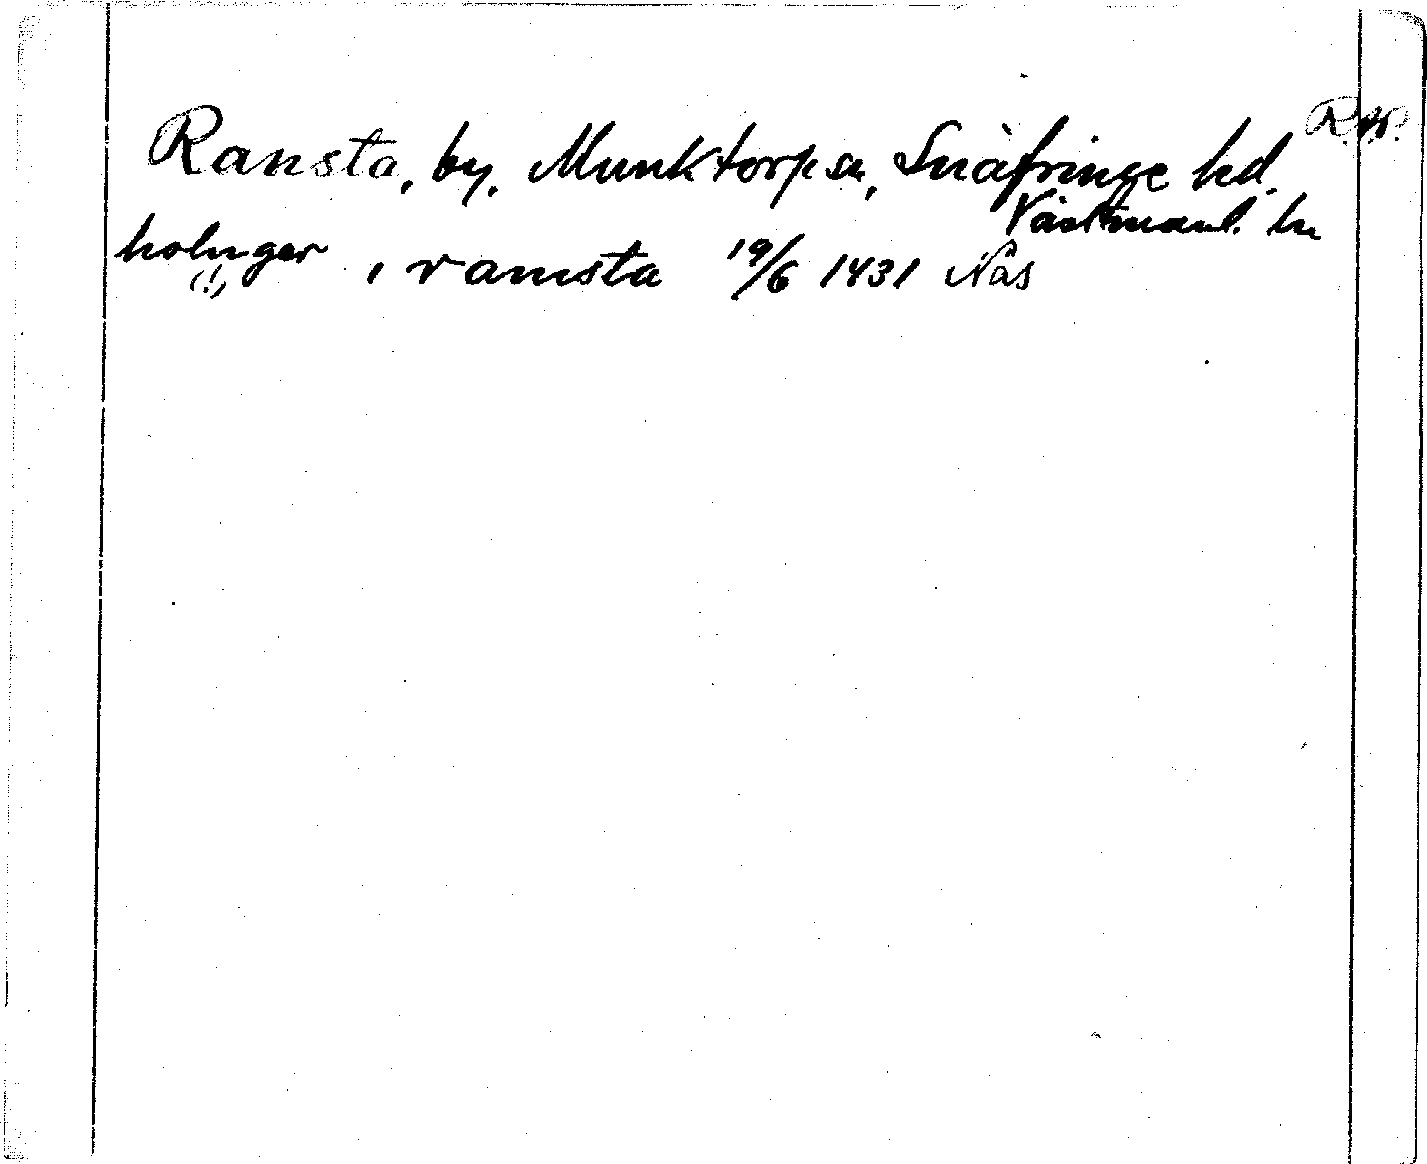 Ransta, by, Munktorp sn, Snäfringe hd.
Västmanl. ln
holnger (!), i ramsta 19/6 1431 Näs